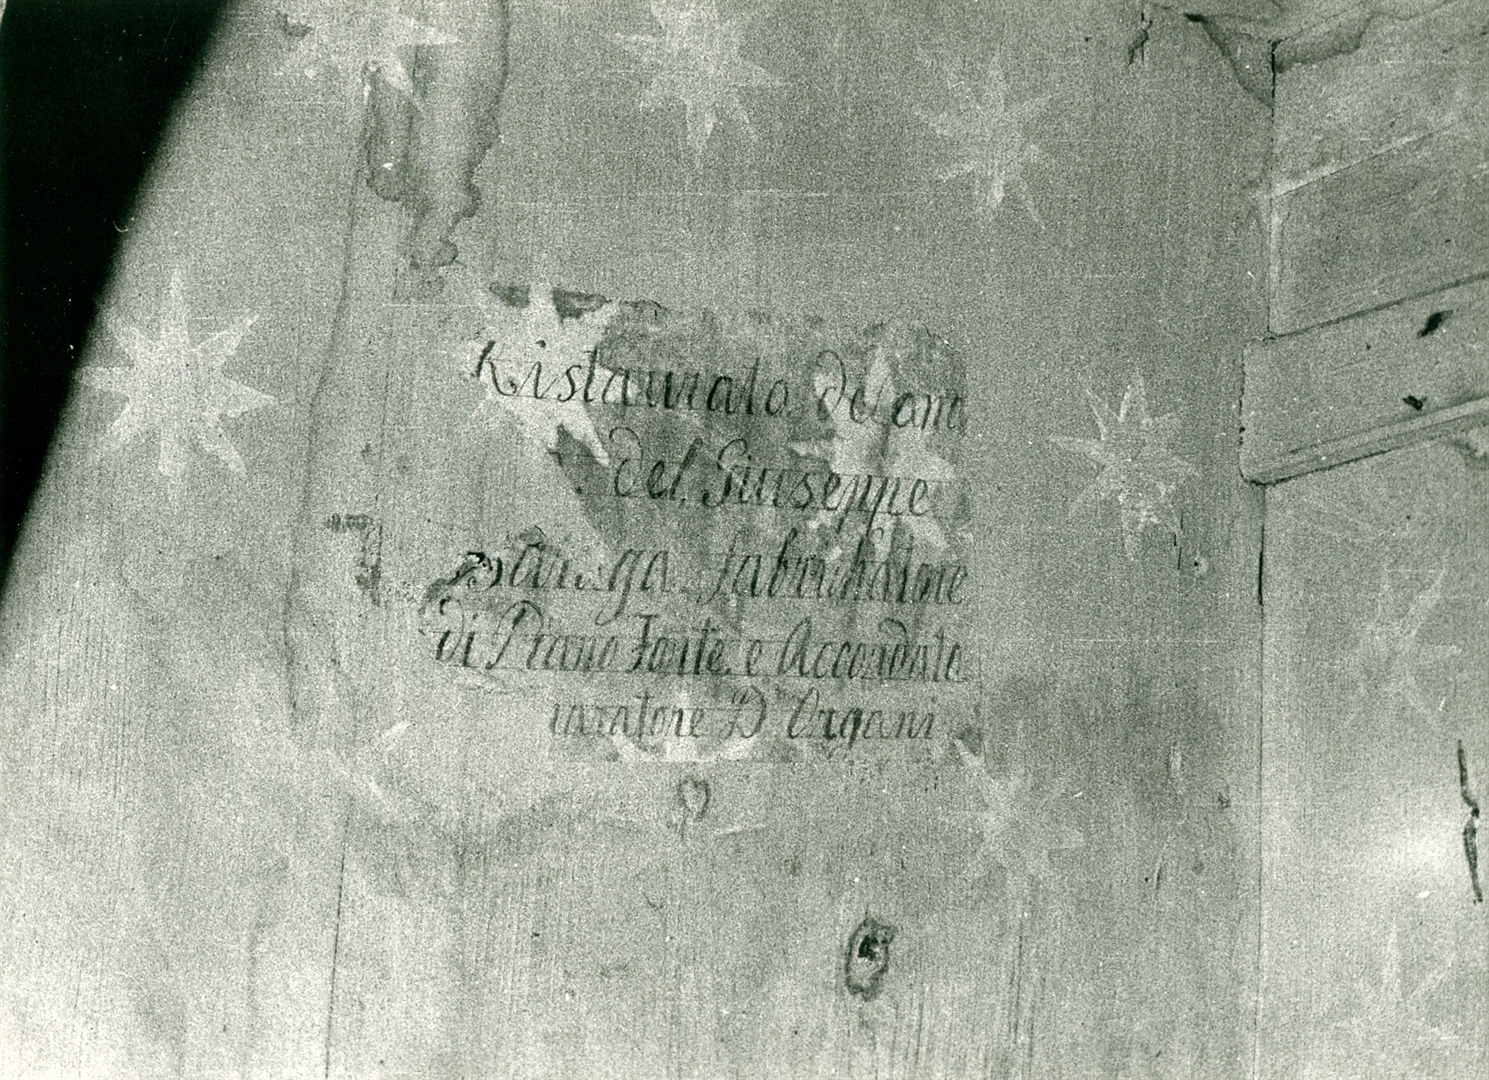 Ristaurato del ano
del Giuseppe
fabrichatore
di Piano forte e Accordato
uratore D' Organi